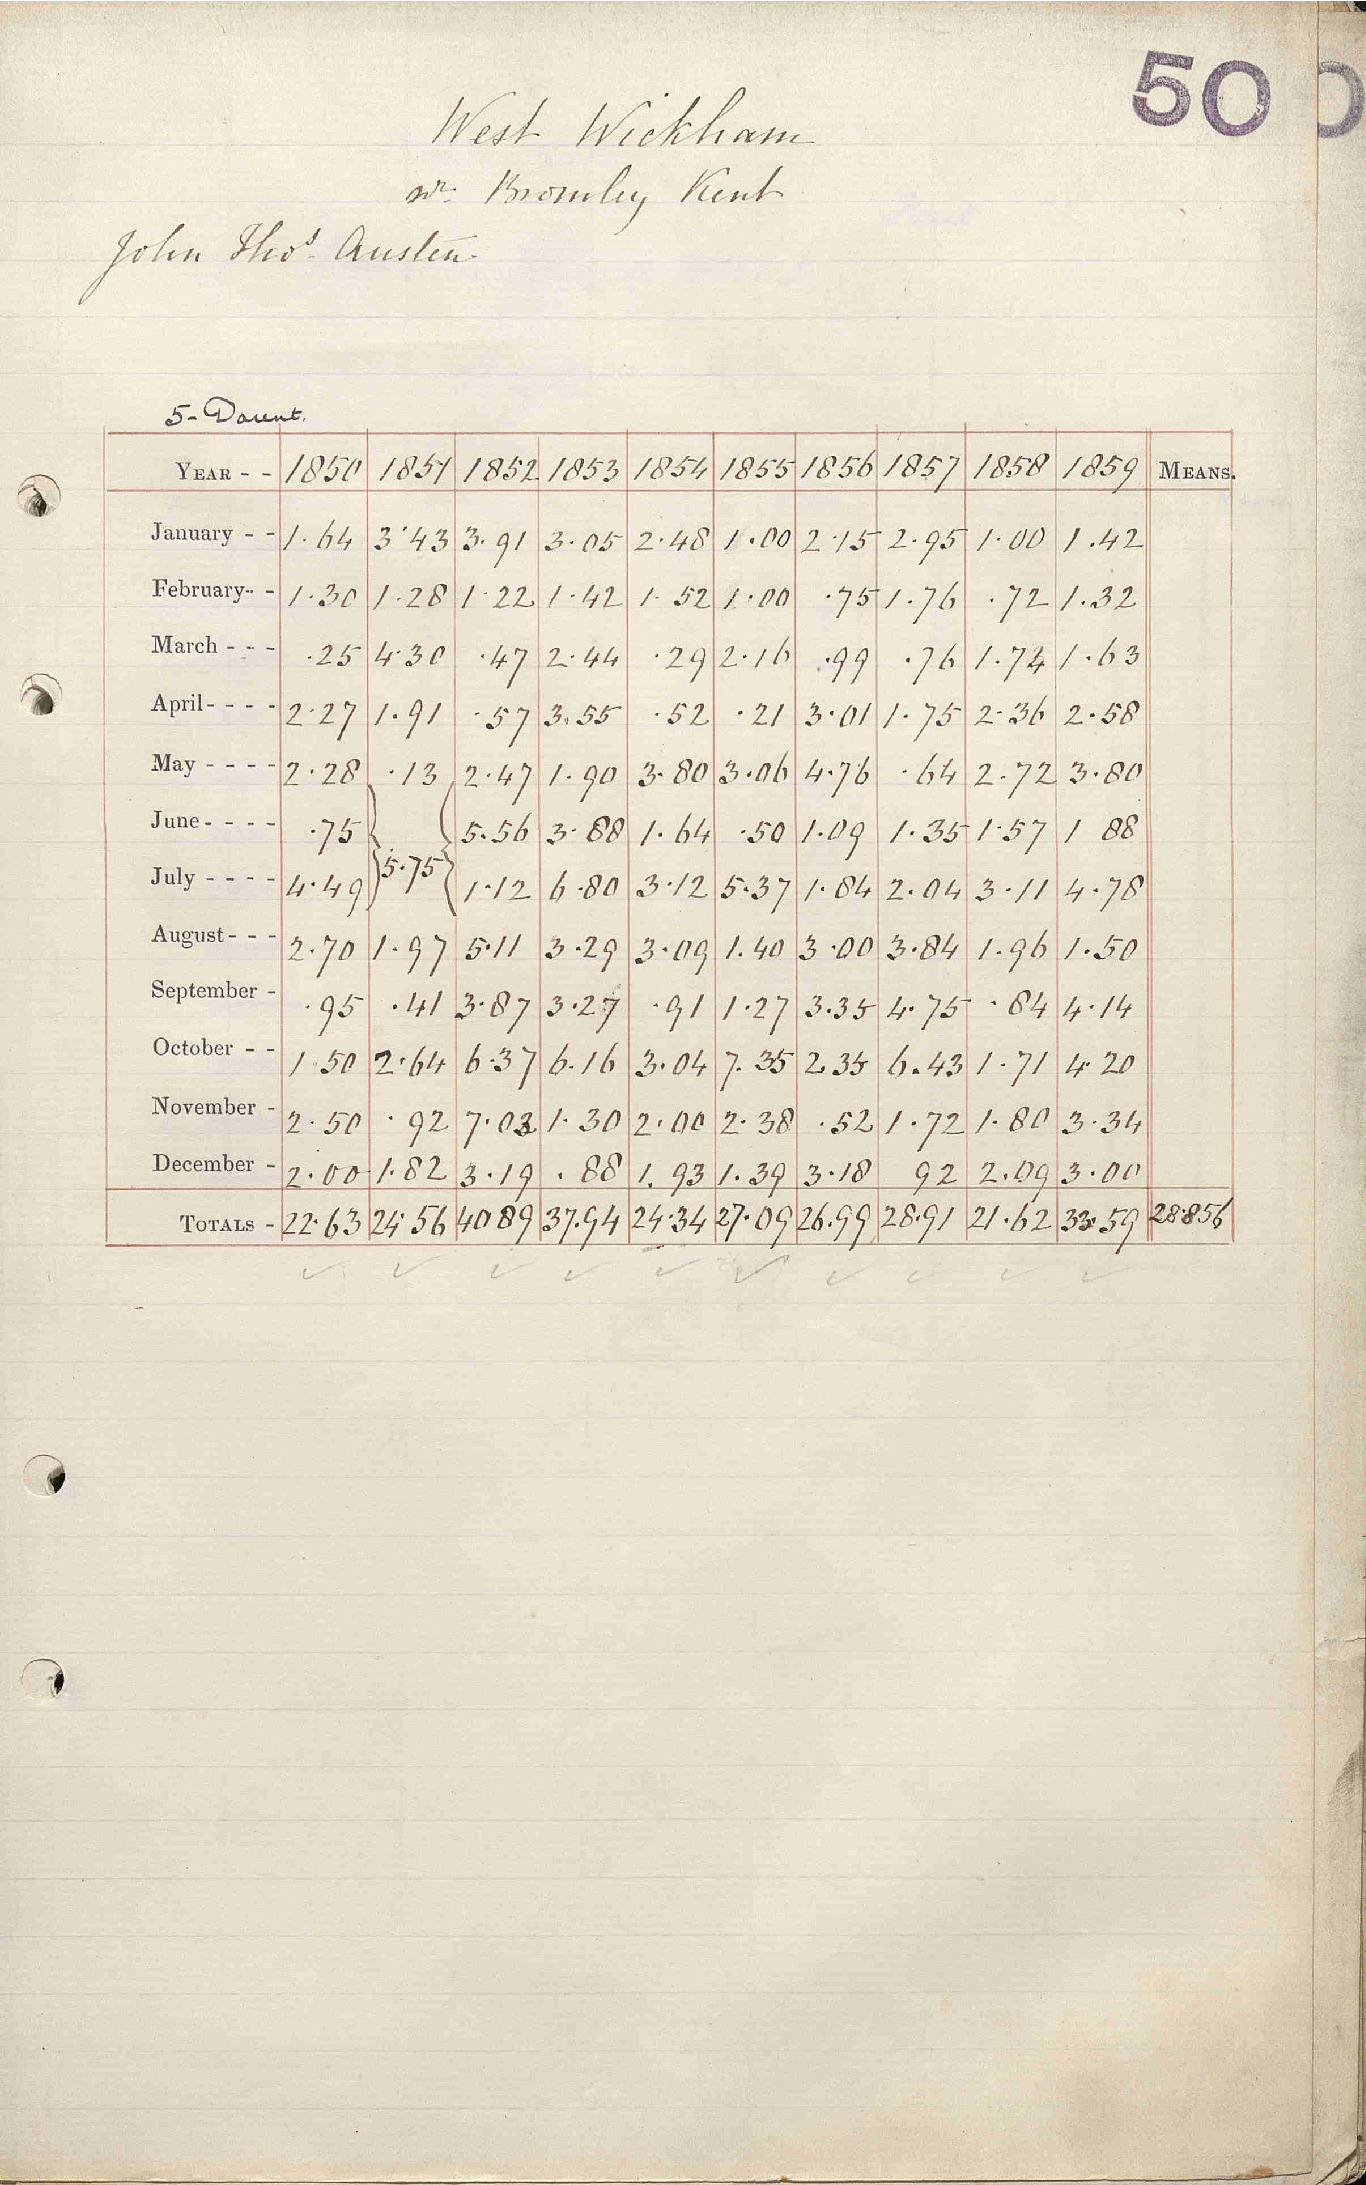 50
West Wickham
nr. Bromley Kent
John Thos. Austen
5-Darent.
YEAR - - 1850 1851 1852 1853 1854 1855 1856 1857 1858 1859 MEANS.
January - - 1.64 3.43 3.91 3.05 2.48 1.00 2.15 2.95 1.00 1.42
February- - 1.30 1.28 1.22 1.42 1.52 1.00 .75 1.76 .72 1.32
March - - - .25 4.30 .47 2.44 .29 2.16 .99 .76 1.74 1.63
April- - - - 2.27 1.91 .57 3.55 .52 .21 3.01 1.75 2.36 2.58
May - - - - 2.28 .13 2.47 1.90 3.80 3.06 4.76 .64 2.72 3.80
June- - - - .75 5.56 3.88 1.64 .50 1.09 1.35 1.57 1 88
July - - - - 4.49 5.75 1.12 6.80 3.12 5.37 1.84 2.04 3.11 4.78
August- - - 2.70 1.97 5.11 3.29 3.09 1.40 3.00 3.84 1.96 1.50
September - .95 .41 3.87 3.27 .91 1.27 3.35 4.75 .84 4.14
October - - 1.50 2.64 6.37 6.16 3.04 7.35 2.35 6.43 1.71 4.20
November - 2.50 .92 7.03 1.30 2.00 2.38 .52 1.72 1.80 3.34
December - 2.00 1.82 3.19 .88 1.93 1.39 3.18 92 2.09 3.00
TOTALS - 22.63 24.56 40 89 37.94 24.34 27.09 26.99 28.91 21.62 33.59 28.856